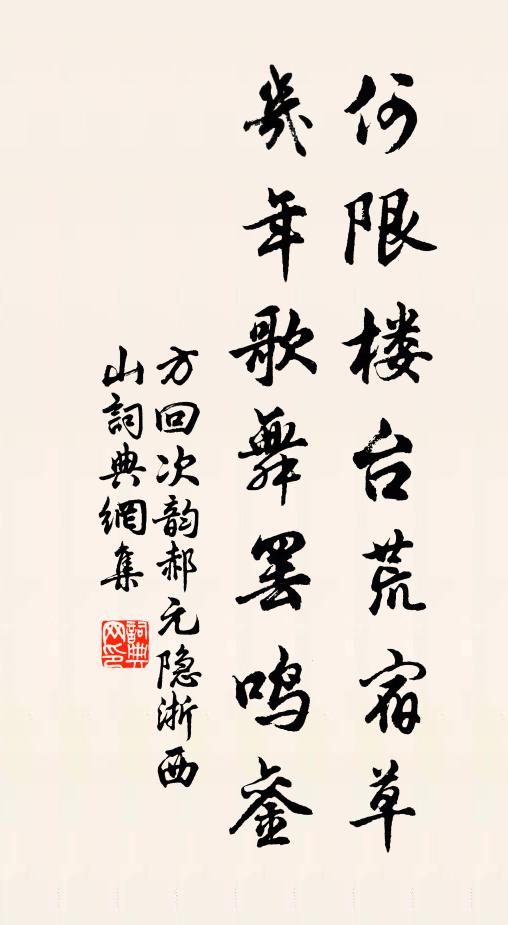 何限楼台荒宿草
几年歌舞罢鸣銮
方回次韵郝元隐浙西
山詞典網集
詞典网印